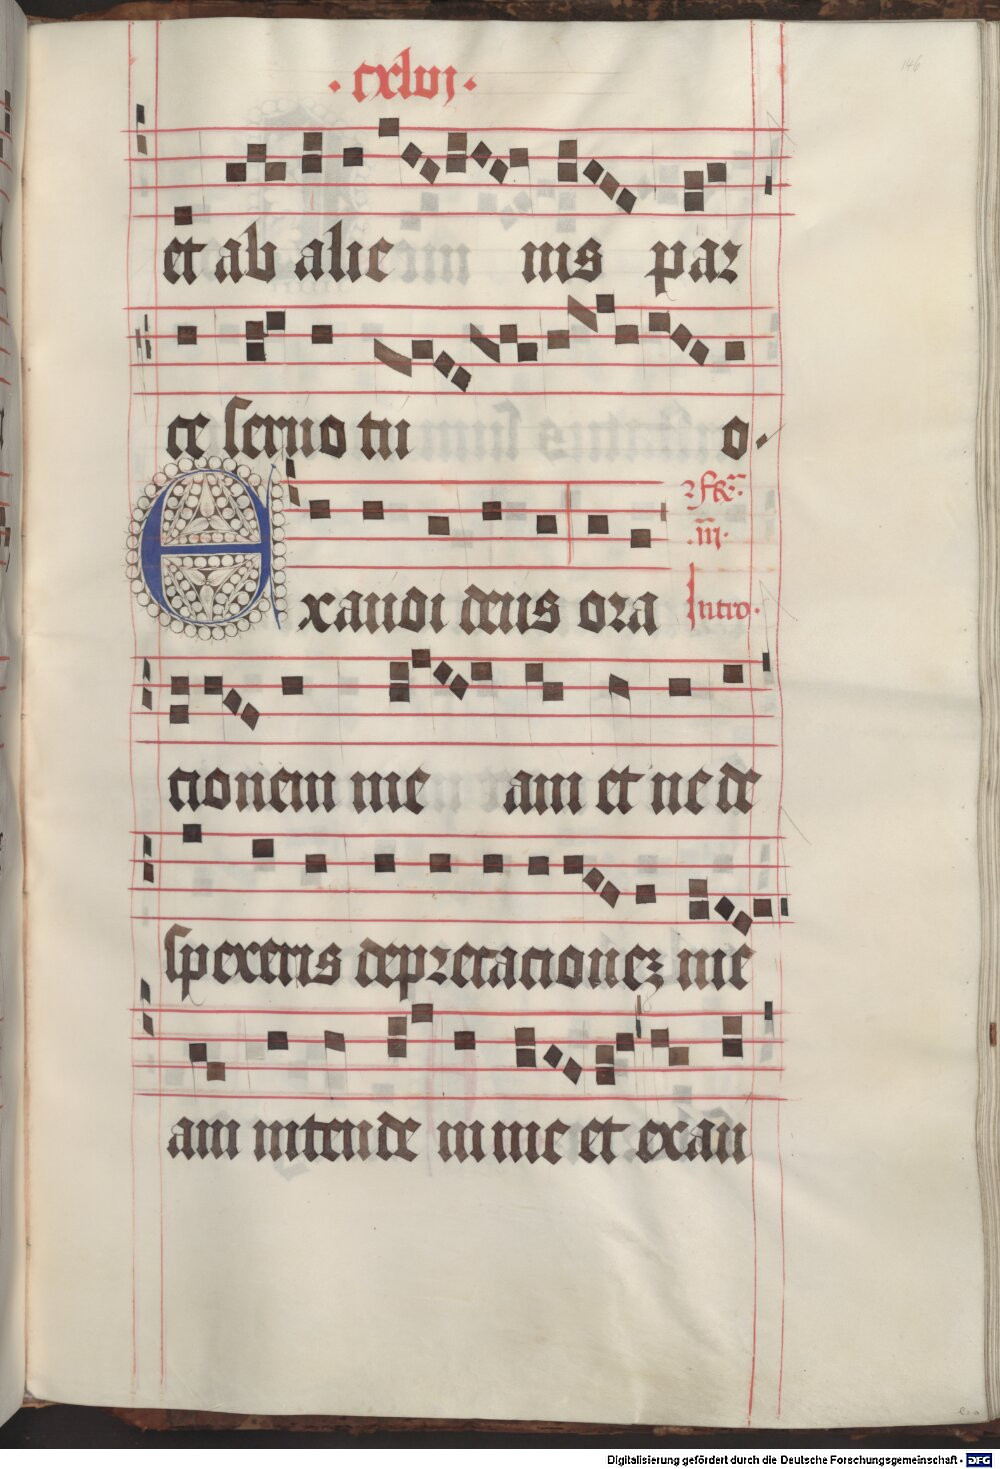 · cxlvj ·
146
et ab alie nis par
ce seruo tu o.
Exaudi deus ora
.iij.
Intro.
cionem me am et ne de
spexeris deprecacionez me
am intende in me et exau
Digitalisierung gefördert durch die Deutsche Forschungsgemeinschaft - DFG